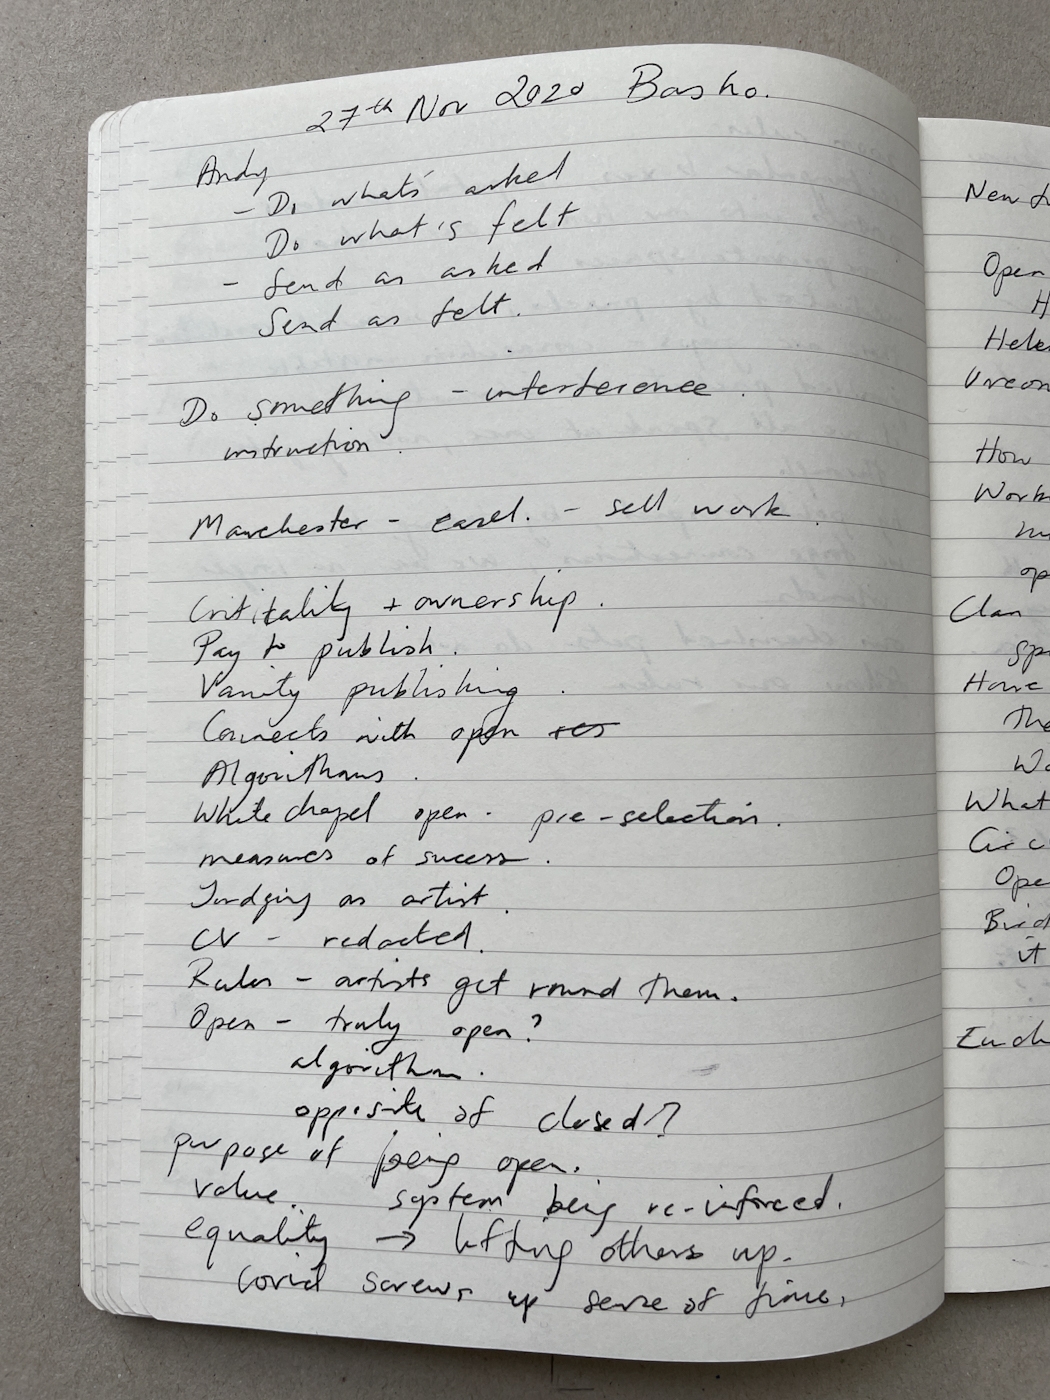 27th Nov 2020 Basho.
Andy
- Do what's asked
Do what's felt
- Send as asked
Send as felt.
Do something - interference.
instruction.
Manchester - easel. - sell work.
Critikality + ownership.
Pay to publish.
Vanity publishing.
Connects with open
Algorithms.
Whitechapel open. pre-selection.
measures of sucess.
Judging as artist.
CV - redacted.
Rules - artists get round them.
Open - truly open?
algorithm.
opposite of closed?
purpose of being open.
value. system being re-inforced.
equality → lifting others up.
Covid screws up sense of time.
New
Open
H
Hele
How
Work
op
Clan
sp
Have
The
Wo
What
Circ
Ope
Bird
it